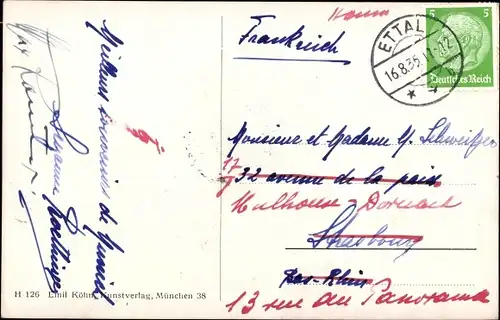 Frankreich
ETTAL
16.8.35.11-12
5 5
Deutsches Reich
Meilleurs souvenirs de Munich
Suzanne
Monsieur et Madame M. Schweitzer
17
32 avenue de la paix
Mulhouse - Dornach
Strasbourg
Bas-Rhin
13 rue du Panorama
H 126 Emil Köhn, Kunstverlag, München 38